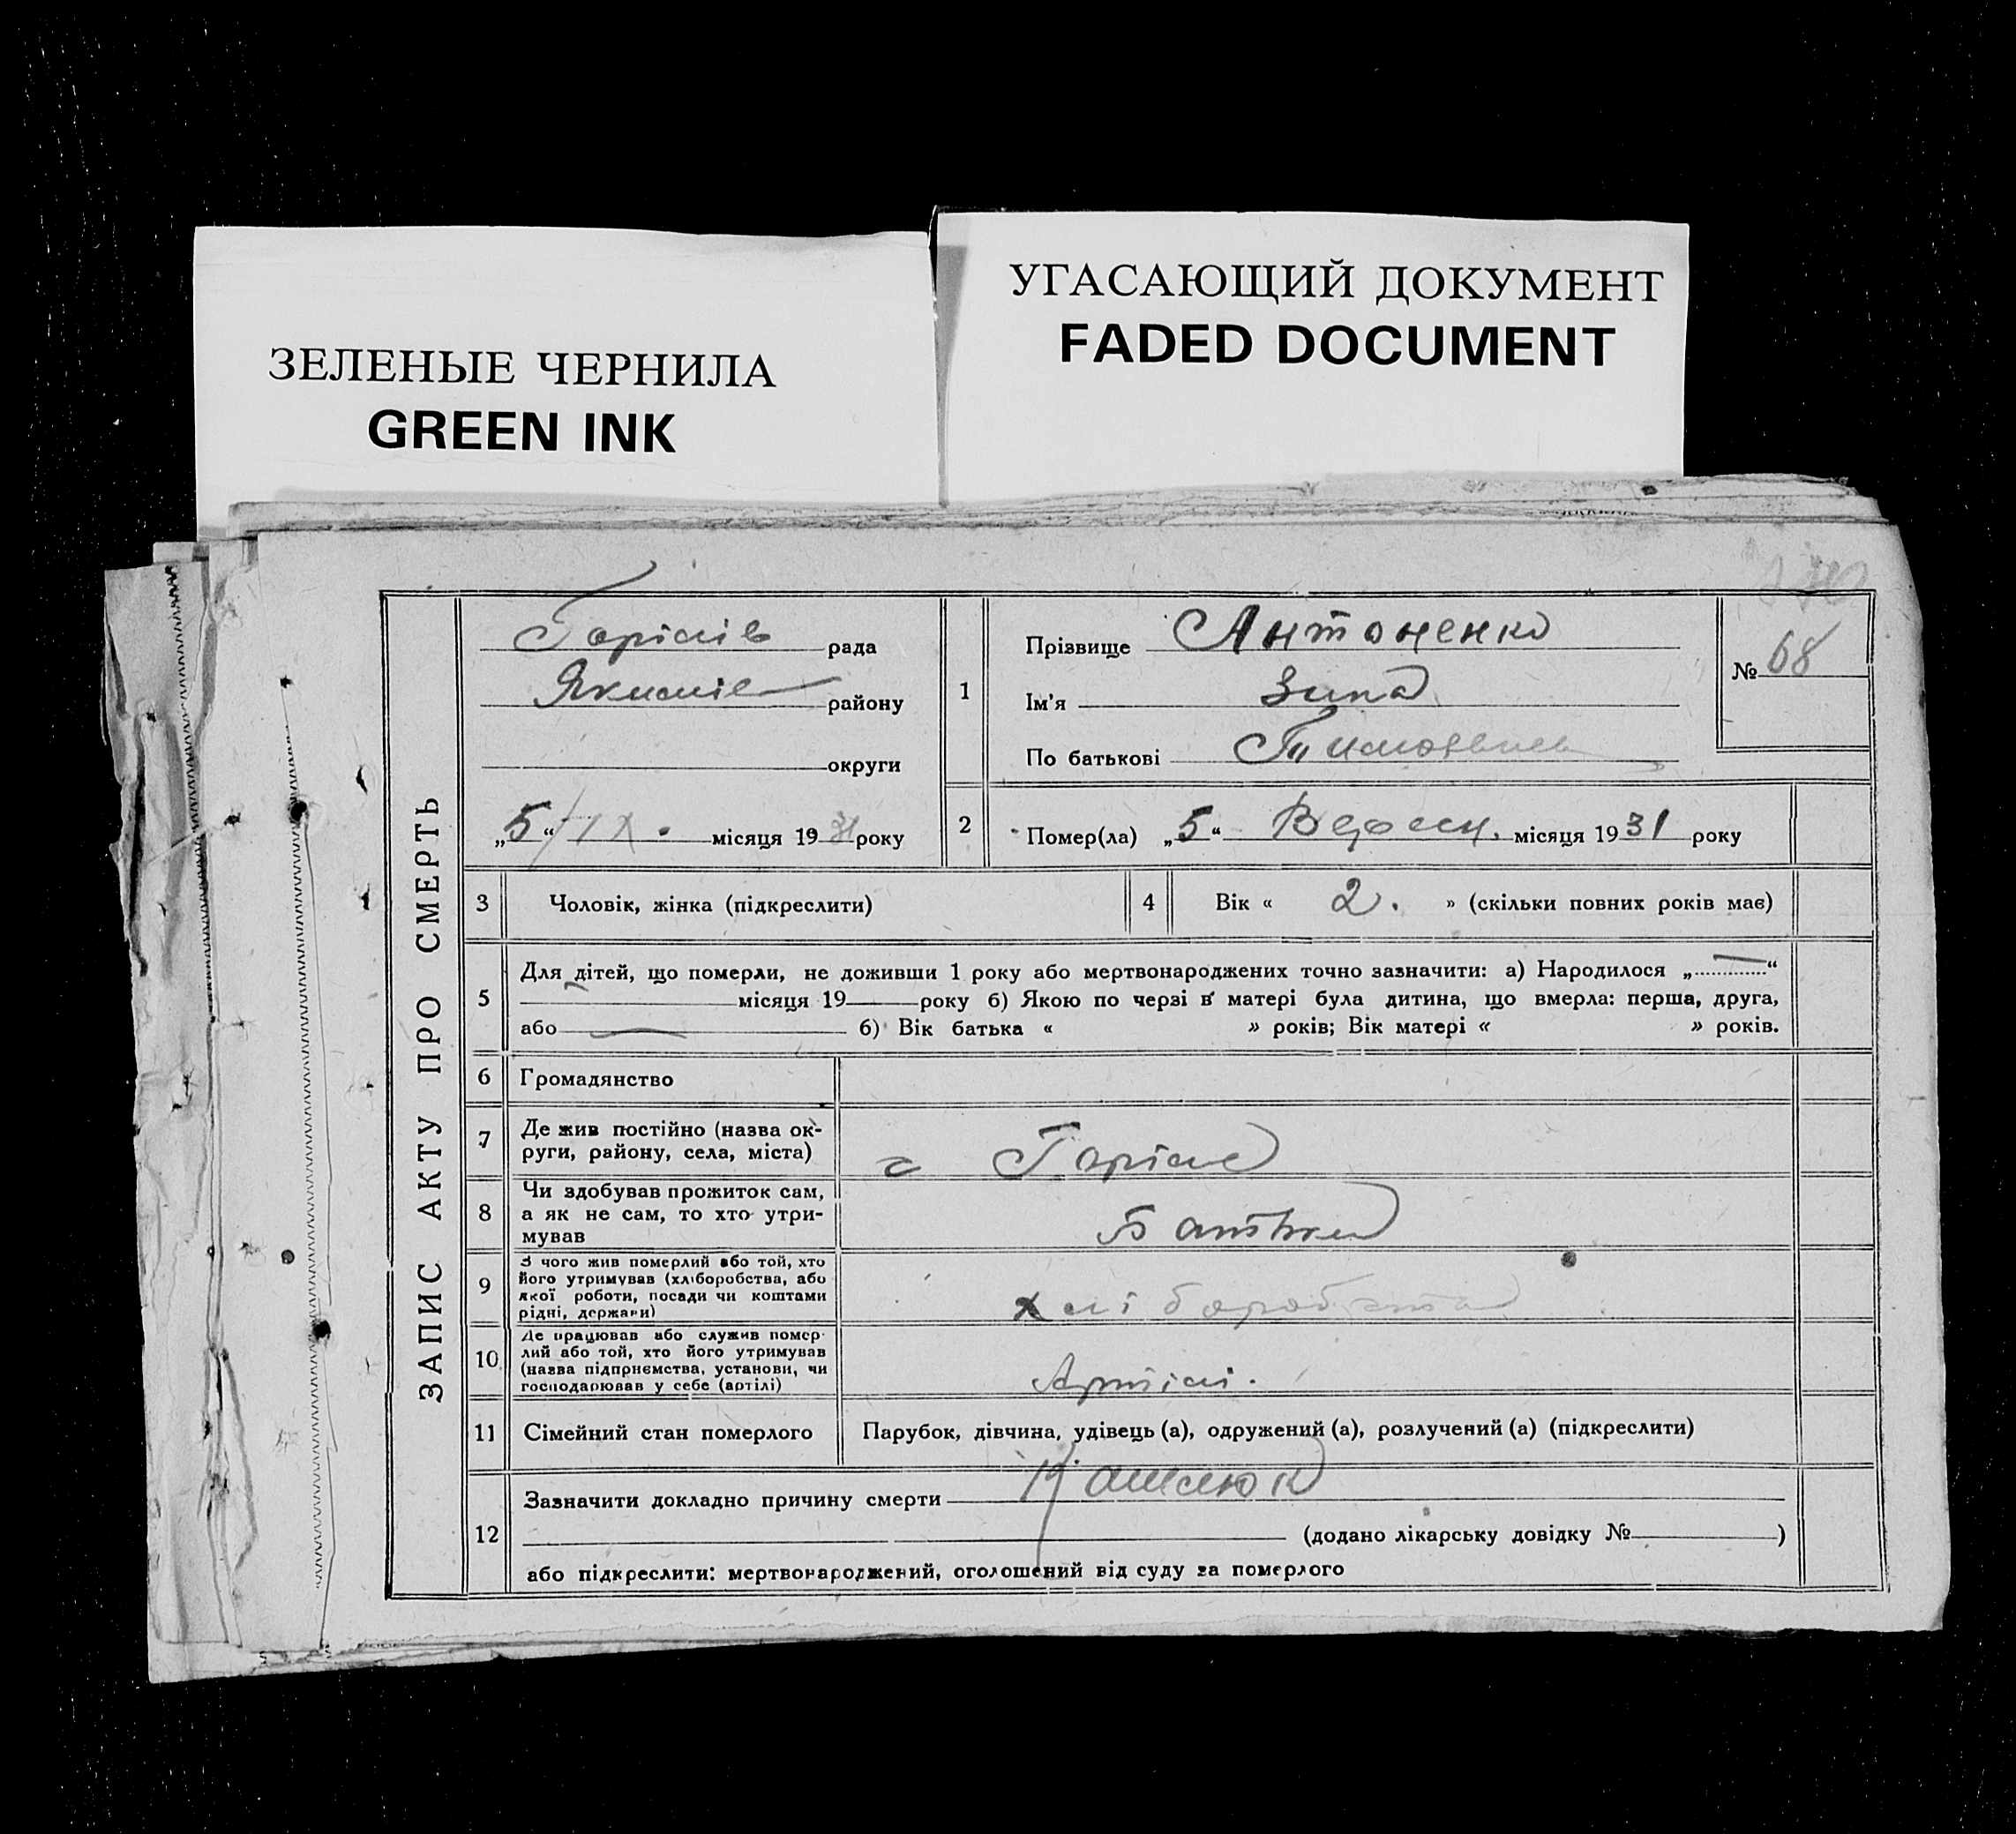 УГАСАЮЩИЙ ДОКУМЕНТ
FADED DOCUMENT
ЗЕЛЕНЫЕ ЧЕРНИЛА
GREEN INK
ЗАПИС АКТУ ПРО СМЕРТЬ
рада
району
округи
„5“ /IX. місяця 1931 року
1
Прізвище Антоненко
Ім'я Зина
По батькові
№ 68
2
Помер(ла) „5“ місяця 1931 року
3 Чоловік, жінка (підкреслити)
4 Вік « 2. » (скільки повних років має)
5 Для дітей, що померли, не доживши 1 року або мертвонароджених точно зазначити: а) Народилося „ “
місяця 19 року б) Якою по черзі в матері була дитина, що вмерла: перша, друга,
або б) Вік батька « » років; Вік матері « » років.
6 Громадянство
7 Де жив постійно (назва ок-
руги, району, села, міста)
8 Чи здобував прожиток сам,
а як не сам, то хто утри-
мував
Батьки
9 З чого жив померлий або той, хто
його утримував (хліборобства, або
якої роботи, посади чи коштами
рідні, держави)
10 Де працював або служив помер-
лий або той, хто його утримував
(назва підприємства, установи, чи
господарював у себе (артілі)
Артілі.
11 Сімейний стан померлого Парубок, дівчина, удівець (а), одружений (а), розлучений (а) (підкреслити)
12 Зазначити докладно причину смерти
(додано лікарську довідку № )
або підкреслити: мертвонароджений, оголошений від суду за померлого